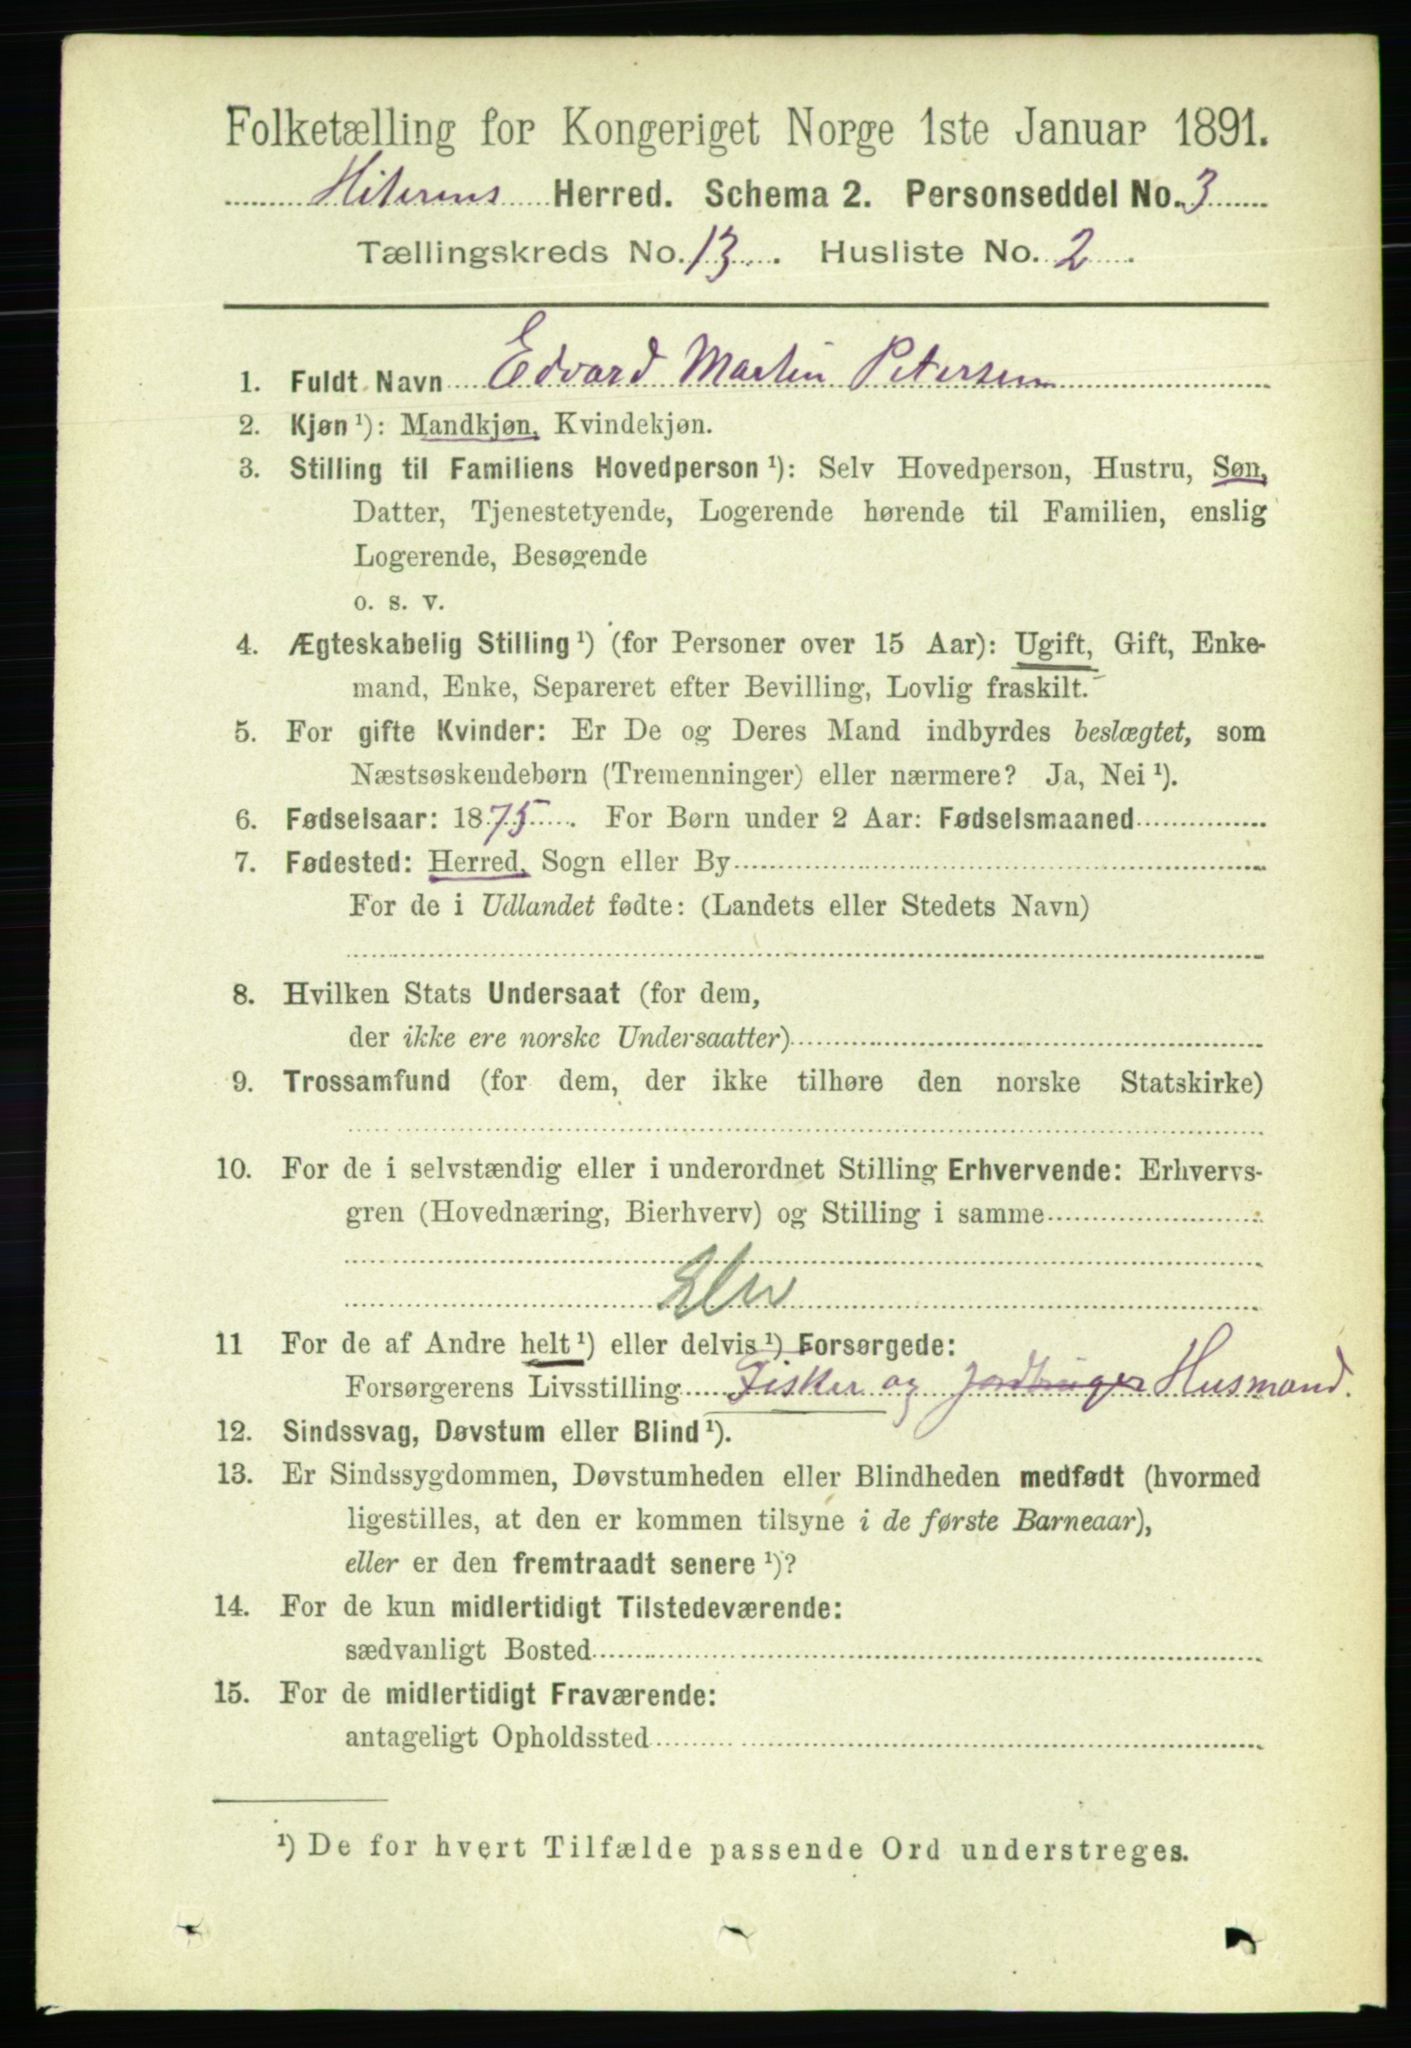 Folketælling for Kongeriget Norge 1ste Januar 1891.
Hiterens Herred. Schema 2. Personseddel No. 3
Tællingskreds No. 13. Husliste No. 2.
1. Fuldt Navn Edvard Martin Petersen
2. Kjøn ¹): Mandkjøn, Kvindekjøn.
3. Stilling til Familiens Hovedperson ¹): Selv Hovedperson, Hustru, Søn,
Datter, Tjenestetyende, Logerende hørende til Familien, enslig
Logerende, Besøgende
o. s. v.
4. Ægteskabelig Stilling ¹) (for Personer over 15 Aar): Ugift, Gift, Enke-
mand, Enke, Separeret efter Bevilling, Lovlig fraskilt.
5. For gifte Kvinder: Er De og Deres Mand indbyrdes beslægtet, som
Næstsøskendebørn (Tremenninger) eller nærmere? Ja, Nei ¹).
6. Fødselsaar: 1875. For Børn under 2 Aar: Fødselsmaaned
7. Fødested: Herred, Sogn eller By
For de i Udlandet fødte: (Landets eller Stedets Navn)
8. Hvilken Stats Undersaat (for dem,
der ikke ere norske Undersaatter)
9. Trossamfund (for dem, der ikke tilhøre den norske Statskirke)
10. For de i selvstændig eller i underordnet Stilling Erhvervende: Erhvervs-
gren (Hovednæring, Bierhverv) og Stilling i samme
11 For de af Andre helt ¹) eller delvis ¹) Forsørgede:
Forsørgerens Livsstilling Fisker og Jordbruger Husmand.
12. Sindssvag, Døvstum eller Blind ¹).
13. Er Sindssygdommen, Døvstumheden eller Blindheden medfødt (hvormed
ligestilles, at den er kommen tilsyne i de første Barneaar),
eller er den fremtraadt senere ¹)?
14. For de kun midlertidigt Tilstedeværende:
sædvanligt Bosted
15. For de midlertidigt Fraværende:
antageligt Opholdssted
¹) De for hvert Tilfælde passende Ord understreges.